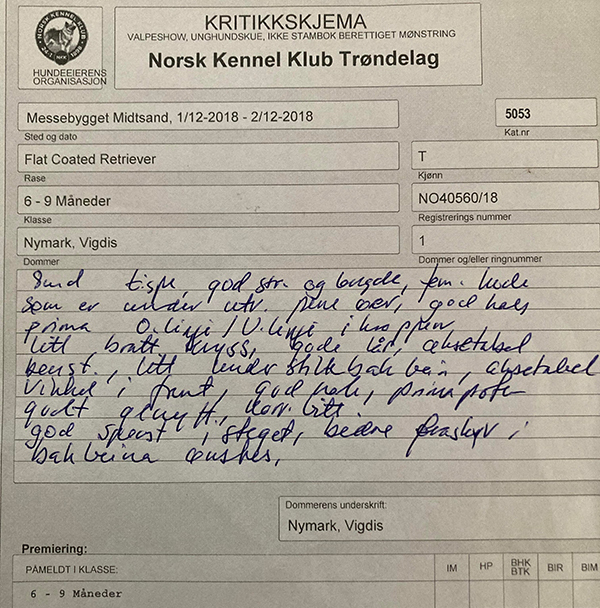 NORSK KENNEL KLUB
NKK 1898
HUNDEEIERENS
ORGANISASJON
KRITIKKSKJEMA
VALPESHOW, UNGHUNDSKUE, IKKE STAMBOK BERETTIGET MØNSTRING
Norsk Kennel Klub Trøndelag
Messebygget Midtsand, 1/12-2018 - 2/12-2018
5053
Sted og dato
Kat.nr
Flat Coated Retriever
T
Rase
Kjønn
6 - 9 Måneder
NO40560/18
Klasse
Registrerings nummer
Nymark, Vigdis
1
Dommer
Dommer og/eller ringnummer
Sund tispe, god str. og lengde, fem. hode
som er under utv. pene ører, god hals
prima O.linje / U.linje i kroppen,
litt bratt kryss, gode lår, akseptabel
benst., litt under stilt bak bein, akseptabel
vinkel i front, god hals, prima poter
godt gemytt, korr. bitt.
god spenst, i steget, bedre fraskyv i
bakbeina ønskes,
Dommerens underskrift:
Nymark, Vigdis
Premiering:
PÅMELDT I KLASSE:
IM
HP
BHK
BTK
BIR
BIM
6 - 9 Måneder